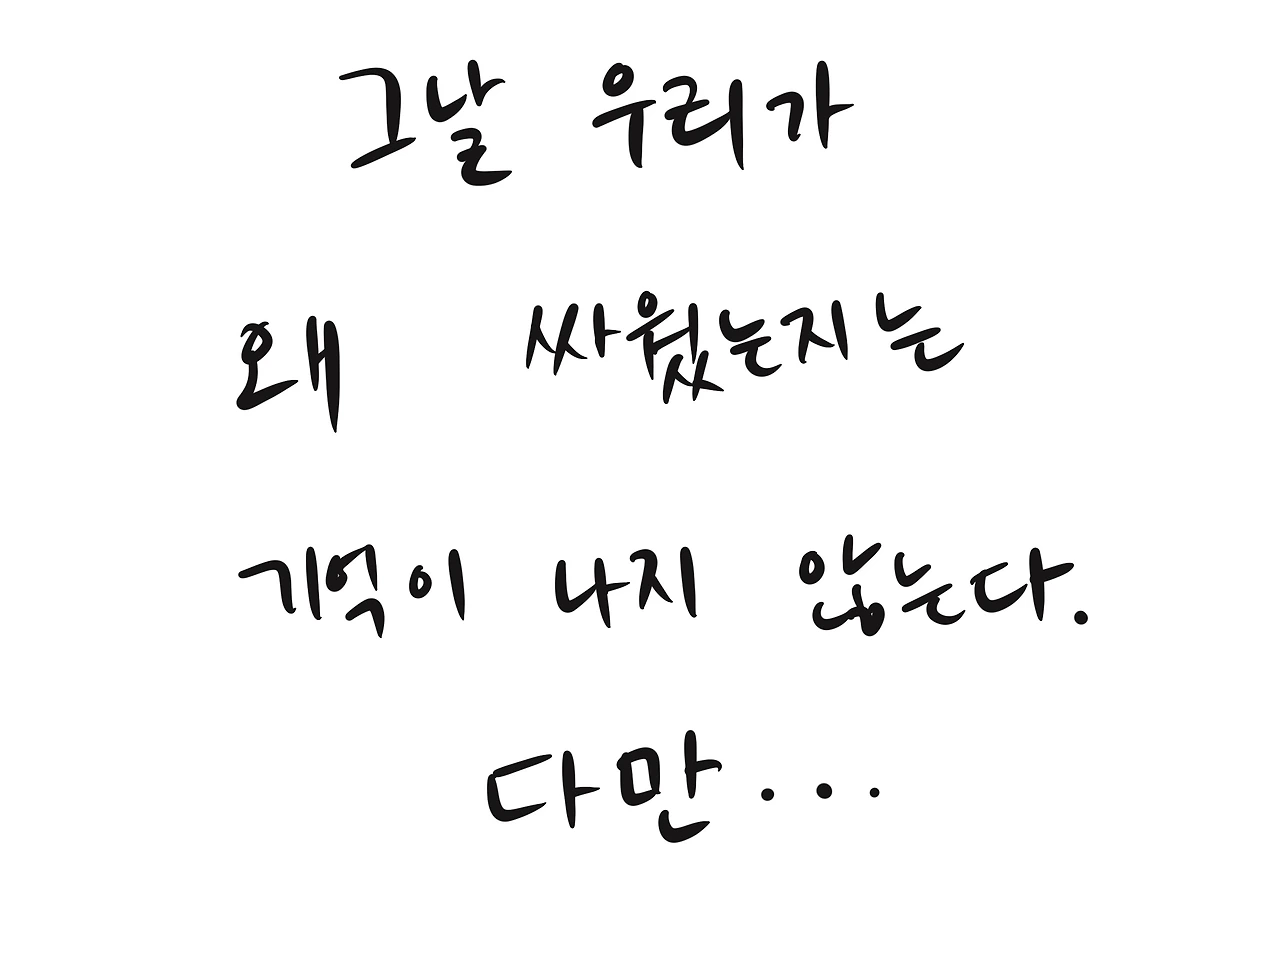 그날 우리가
왜 싸웠는지는
기억이 나지 않는다.
다만...